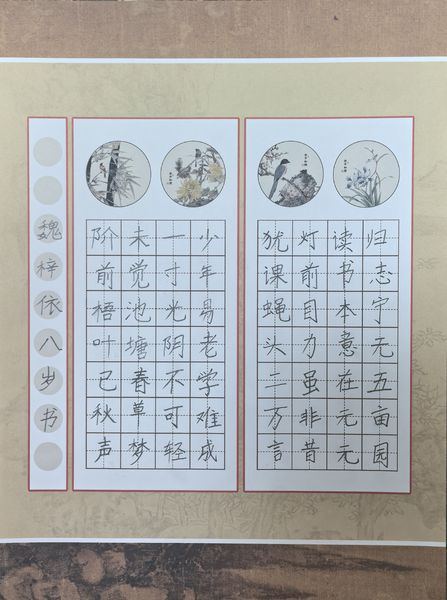 归志宁无五亩园
读书本意在元元
灯前目力虽非昔
犹课蝇头二万言
少年易老学难成
一寸光阴不可轻
未觉池塘春草梦
阶前梧叶已秋声
魏梓依八岁书